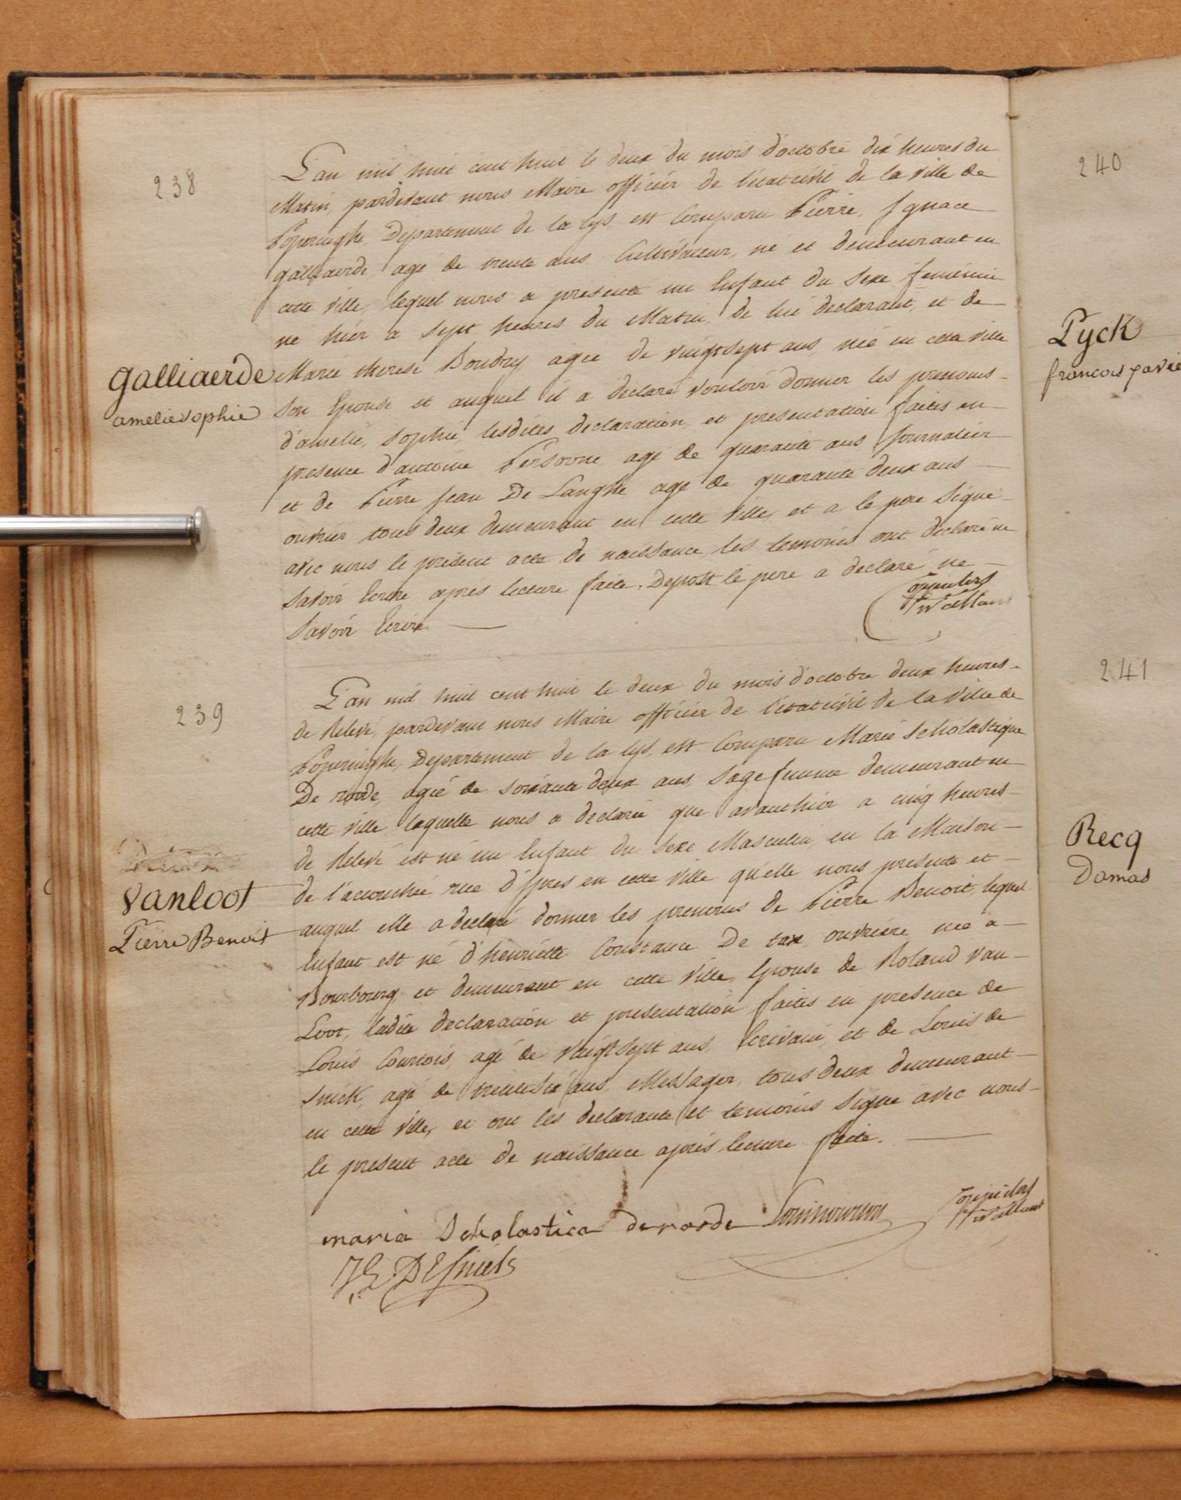 238
galliaerde
amelie sophie
L'an mil huit cent huit le deux du mois d'octobre dix heures du
Matin, pardevant nous Maire officier de l'état civil de la ville de
Poperinghe, Departement de la Lys, est Comparu Pierre, Ignace
galliaerde agé de trente ans Cultivateur, né et demeurant en
cette ville, lequel nous a presenté un Enfant du Sexe feminin
né hier a sept heures du Matin, de lui declarant, et de
Marie therese Boudry agée de vingtsept ans née en cette ville
son Epouse et auquel il a declaré vouloir donner les prenoms
d'amelie, Sophie, lesdites declaration et presentation faites en
presence d'antoine Persoone agé de quarante ans Journalier
et de Pierre Jean De Langhe agé de quarante deux ans
ouvrier tous deux demeurant en cette ville et a le pere signé
avec nous le présent acte de naissance, les temoins ont declaré ne
savoir Ecrire après lecture faite. Depost le pere a declaré ne
Savoir Ecrire
239
vanloot
Pierre Benoit
L'an mil huit cent huit le deux du mois d'octobre deux heures
de Relevé, pardevant nous Maire officier de l'état civil de la Ville de
Poperinghe, Departement de la Lys, est Comparu Marie Scholastique
De roode, agée de soixante deux ans, Sage femme demeurant en
cette ville, laquelle nous a declaré que avanthier a cinq heures
de Relevé est né un Enfant du Sexe Masculin en la Maison
de l'accouchée rue d'Ypres en cette ville qu'elle nous presente et
auquel elle a declaré donner les prenoms de Pierre Benoit, lequel
Enfant est né d'henriette Constance De tax ouvrière née à
Bourbourg et demeurant en cette ville, Epouse de Roland van
Loot, ladite declaration et presentation faites en presence de
Louis Courtois, agé de vingtsept ans Ecrivain, et de Louis de
Snick, agé de ans Messager, tous deux demeurant
en cette ville, et ont les declarante et temoins signé avec nous
le present acte de naissance après lecture faite.
maria Scholastica de roode
240
Pyck
francois xavie
241
Recq
Damas